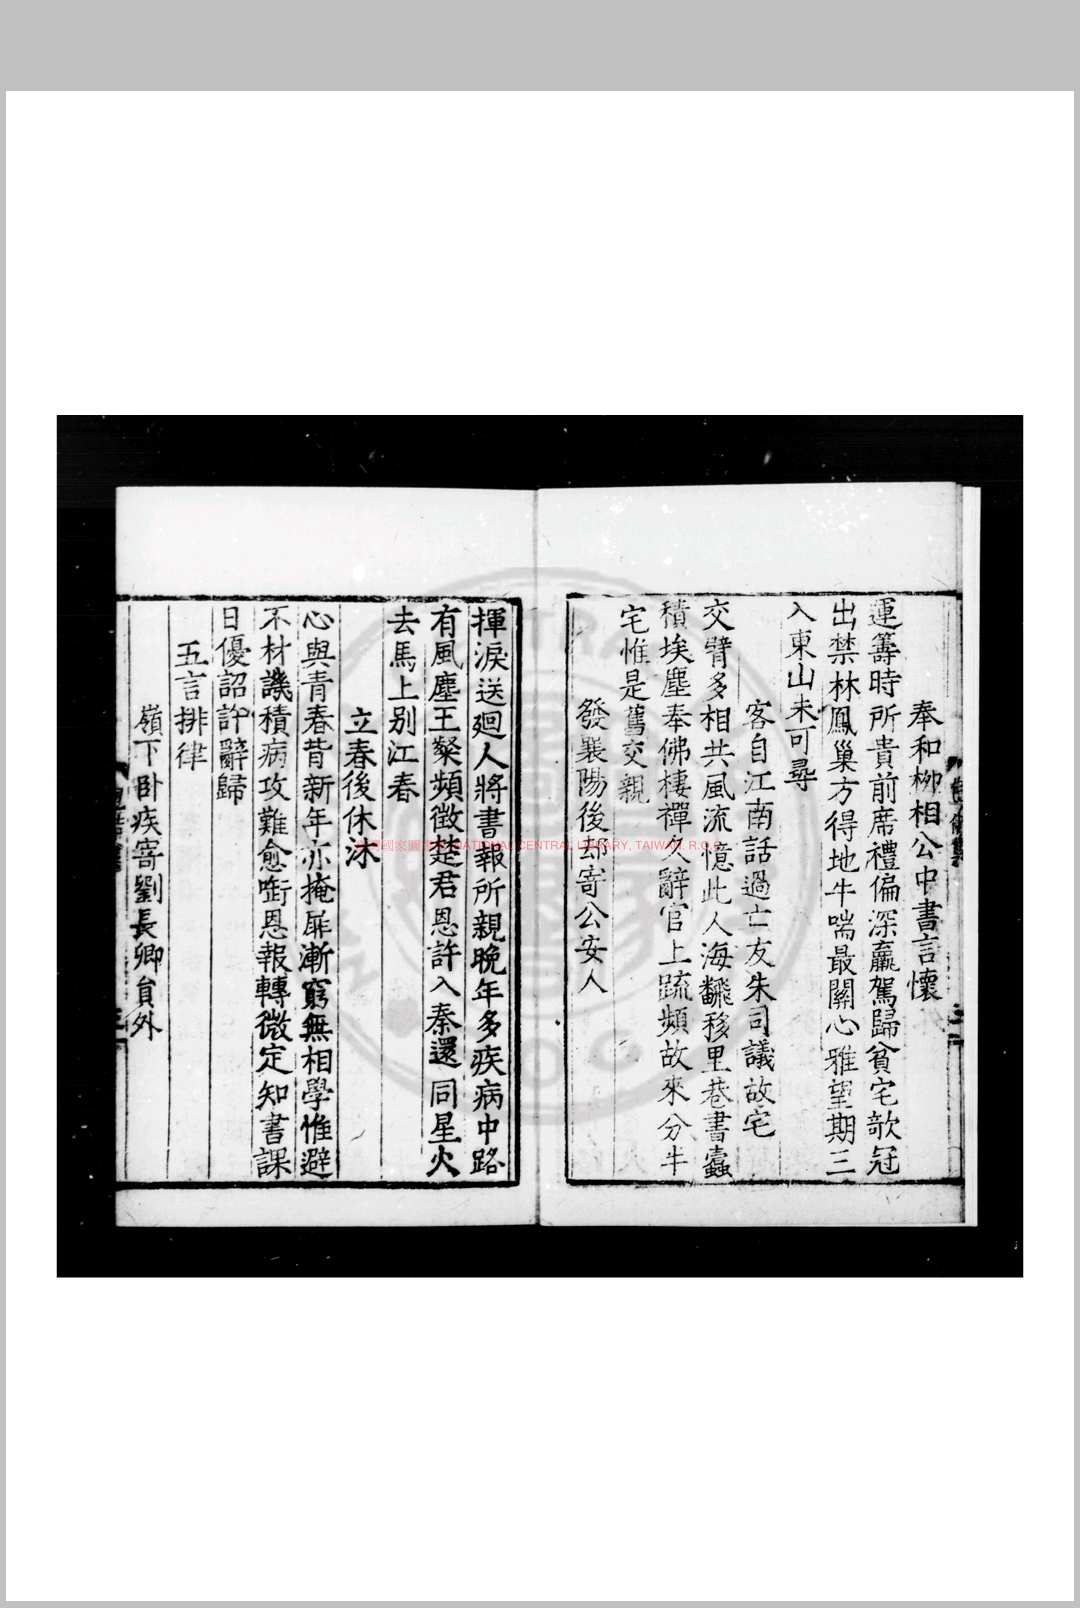 奉和栁相公中書言懷
運籌時所貴前席禮偏深羸駕歸貧宅欹冠
出禁林鳳巢方得地牛喘最關心雅望期三
入東山未可尋
客自江南話過亡友朱司議故宅
交臂多相共風流憶此人海飜移里巷書蠧
積埃塵奉佛棲禪久辭官上䟽頻故來分牛
宅惟是舊交親
發襄陽後却寄公安人
揮淚送廻人將書報所親晚年多疾病中路
有風塵王粲頻徵楚君恩許入秦還同星火
去馬上別江春
立春後休沐
心與青春昔新年亦掩扉漸窮無相學惟避
不材譏積病攻難愈啣恩報轉微定知書課
日優詔許辭歸
五言排律
嶺下卧疾寄劉長卿員外
國家圖 NATIONAL CENTRAL LIBRARY, TAIWAN, R.O.C